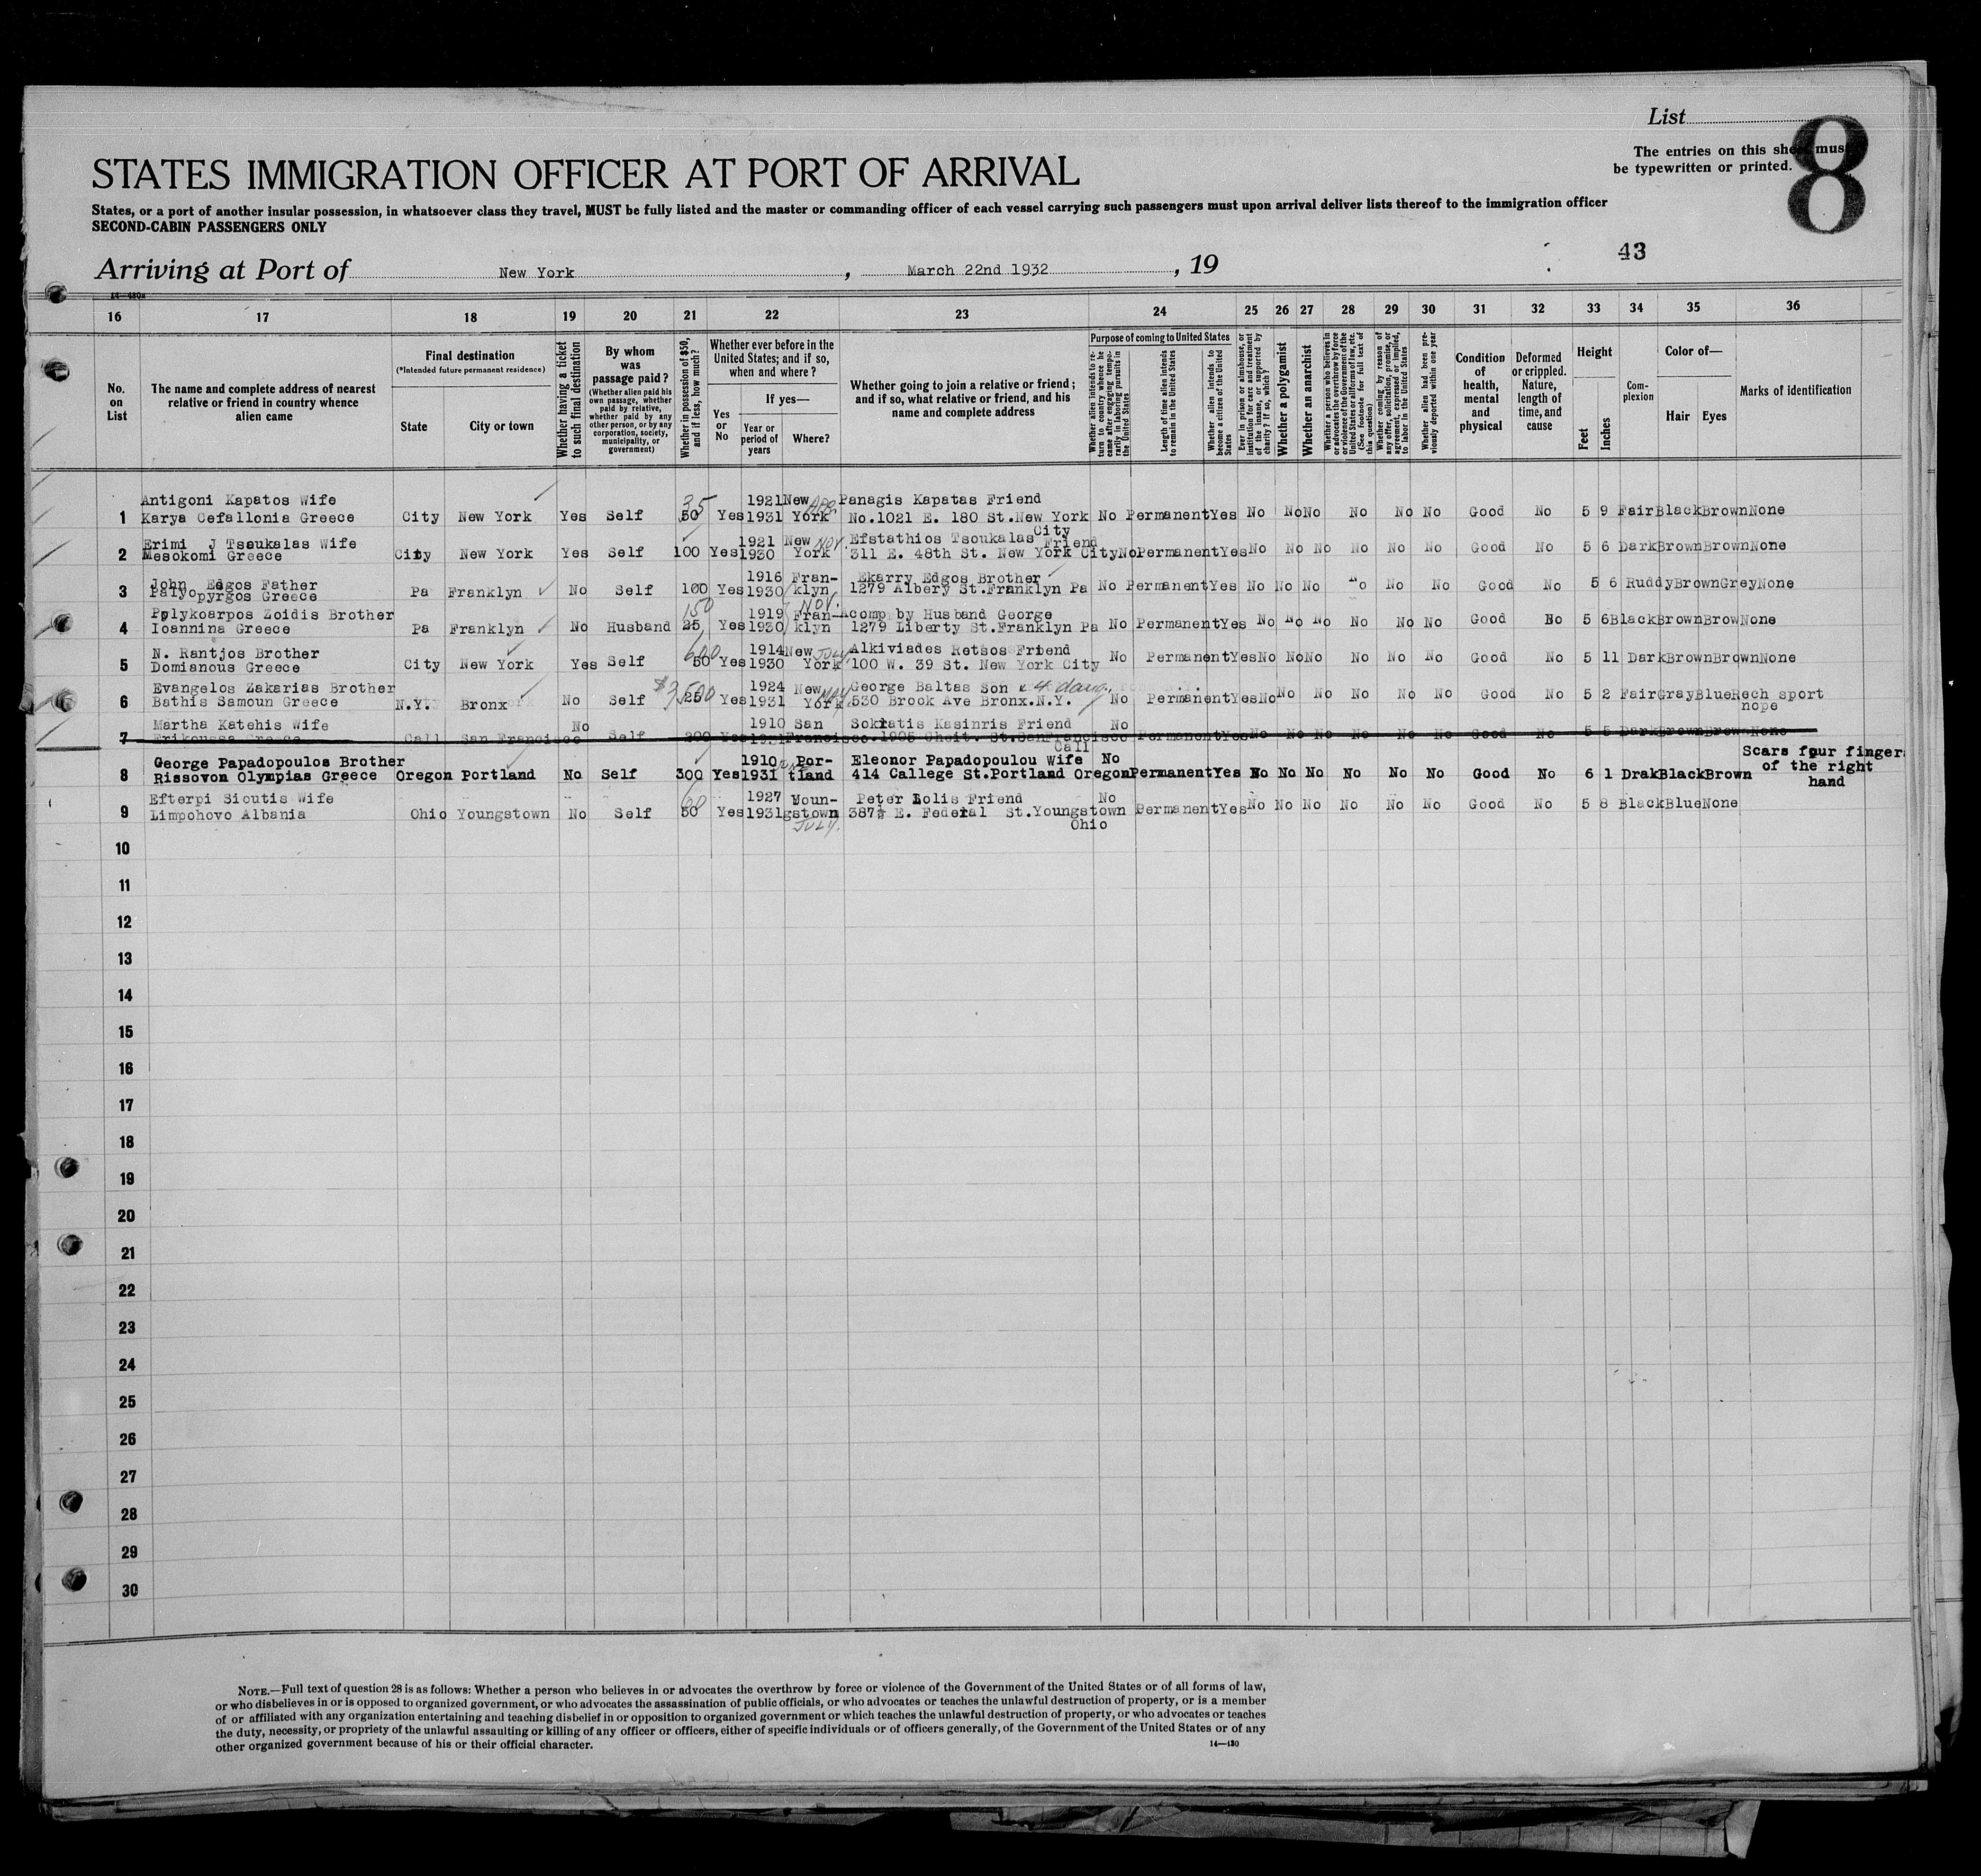 List
8
The entries on this sheet must
be typewritten or printed.
STATES IMMIGRATION OFFICER AT PORT OF ARRIVAL
States, or a port of another insular possession, in whatsoever class they travel, MUST be fully listed and the master or commanding officer of each vessel carrying such passengers must upon arrival deliver lists thereof to the immigration officer
SECOND-CABIN PASSENGERS ONLY
43
Arriving at Port of New York, March 22nd 1932, 19
14—480a
16 17 18 19 20 21 22 23 24 25 26 27 28 29 30 31 32 33 34 35 36
No. on List
The name and complete address of nearest relative or friend in country whence alien came
Final destination
(*Intended future permanent residence)
State
City or town
Whether having a ticket to such final destination
By whom was passage paid?
(Whether alien paid his own passage, whether paid by relative, whether paid by any other person, or by any corporation, society, municipality, or government)
Whether in possession of $50, and if less, how much?
Whether ever before in the United States; and if so, when and where?
Yes or No
If yes—
Year or period of years
Where?
Whether going to join a relative or friend; and if so, what relative or friend, and his name and complete address
Purpose of coming to United States
Whether alien intends to return to country whence he came after engaging temporarily in laboring pursuits in the United States
Length of time alien intends to remain in the United States
Whether alien intends to become a citizen of the United States
Ever in prison or almshouse, or institution for care and treatment of the insane, or supported by charity? If so, which?
Whether a polygamist
Whether an anarchist
Whether a person who believes in or advocates the overthrow by force or violence of the Government of the United States or all forms of law, etc. (See footnote for full text of this question)
Whether coming by reason of any offer, solicitation, promise, or agreement, expressed or implied, to labor in the United States
Whether alien had been previously deported within one year
Condition of health, mental and physical
Deformed or crippled. Nature, length of time, and cause
Height
Feet
Inches
Complexion
Color of—
Hair
Eyes
Marks of identification
Antigoni Kapatos Wife 35 1921 New Panagis Kapatas Friend
1 Karya Cefallonia Greece City New York Yes Self 50 Yes 1931 York No.1021 E. 180 St.New York No Permanent Yes No No No No No No Good No 5 9 Fair Black Brown None
City
Erimi J Tsoukalas Wife 1921 New NOV. Efstathios Tsoukalas Friend
2 Mesokomi Greece City New York Yes Self 100 Yes 1930 York 311 E. 48th St. New York City No Permanent Yes No No No No No No Good No 5 6 Dark Brown Brown None
John Edgos Father 1916 Fran- Ekarry Edgos Brother
3 Palyopyrgos Greece Pa Franklyn No Self 100 Yes 1930 klyn 1279 Albery St.Franklyn Pa No Permanent Yes No No No No No No Good No 5 6 Ruddy Brown Grey None
Polykoarpos Zoidis Brother 150 1919 NOV. Fran- Acomp by Husband George
4 Ioannina Greece Pa Franklyn No Husband 25 Yes 1930 klyn 1279 Liberty St.Franklyn Pa No Permanent Yes No No No No No No Good No 5 6 Black Brown Brow None
N. Rantjos Brother 600 1914 New JULY Alkiviades Retsos Friend
5 Domianous Greece City New York Yes Self 50 Yes 1930 York 100 W. 39 St. New York City No Permanent Yes No No No No No No Good No 5 11 Dark Brown Brown None
Evangelos Zakarias Brother $3,500 1924 New MAY George Baltas Son & 4 daug.
6 Bathis Samoun Greece N.Y. Bronx No Self 25 Yes 1931 York 530 Brook Ave Bronx.N.Y. No Permanent Yes No No No No No No Good No 5 2 Fair Gray Blue Rech sport
nope
Martha Katehis Wife No 1910 San Sokratis Kasinris Friend No
7 Erikoussa Greece Call San Francisco Self 200 Yes 1931 Francisco. St.SanFrancisco Permanent Yes No No No No No No Good No 5 5 Dark Brown Brow None
Call
George Papadopoulos Brother 1910 Por- Eleonor Papadopoulou Wife No Scars four fingers
8 Rissovon Olympias Greece Oregon Portland No Self 300 Yes 1931 tland 414 Callege St.Portland Oregon Permanent Yes No No No No No No Good No 6 1 Drak Black Brown of the right
hand
Efterpi Sioutis Wife 60 1927 Youn- Peter Lolis Friend No
9 Limpohovo Albania Ohio Youngstown No Self 50 Yes 1931 gstown 387½ E. Federal St.Youngstown Permanent Yes No No No No No No Good No 5 8 Black Blue None
JULY. Ohio
10
11
12
13
14
15
16
17
18
19
20
21
22
23
24
25
26
27
28
29
30
NOTE.—Full text of question 28 is as follows: Whether a person who believes in or advocates the overthrow by force or violence of the Government of the United States or of all forms of law,
or who disbelieves in or is opposed to organized government, or who advocates the assassination of public officials, or who advocates or teaches the unlawful destruction of property, or is a member
of or affiliated with any organization entertaining and teaching disbelief in or opposition to organized government or which teaches the unlawful destruction of property, or who advocates or teaches
the duty, necessity, or propriety of the unlawful assaulting or killing of any officer or officers, either of specific individuals or of officers generally, of the Government of the United States or of any
other organized government because of his or their official character.
14—430